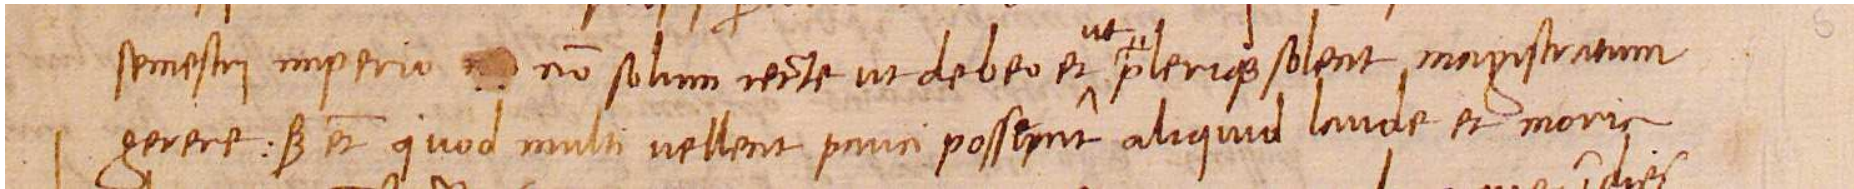 semestri imperio nō solum recte ut debeo et ut pleriqꝫ solent magistratum
gerere: sꝫ et̄ quod multi uellent pauci possent aliquid laude et